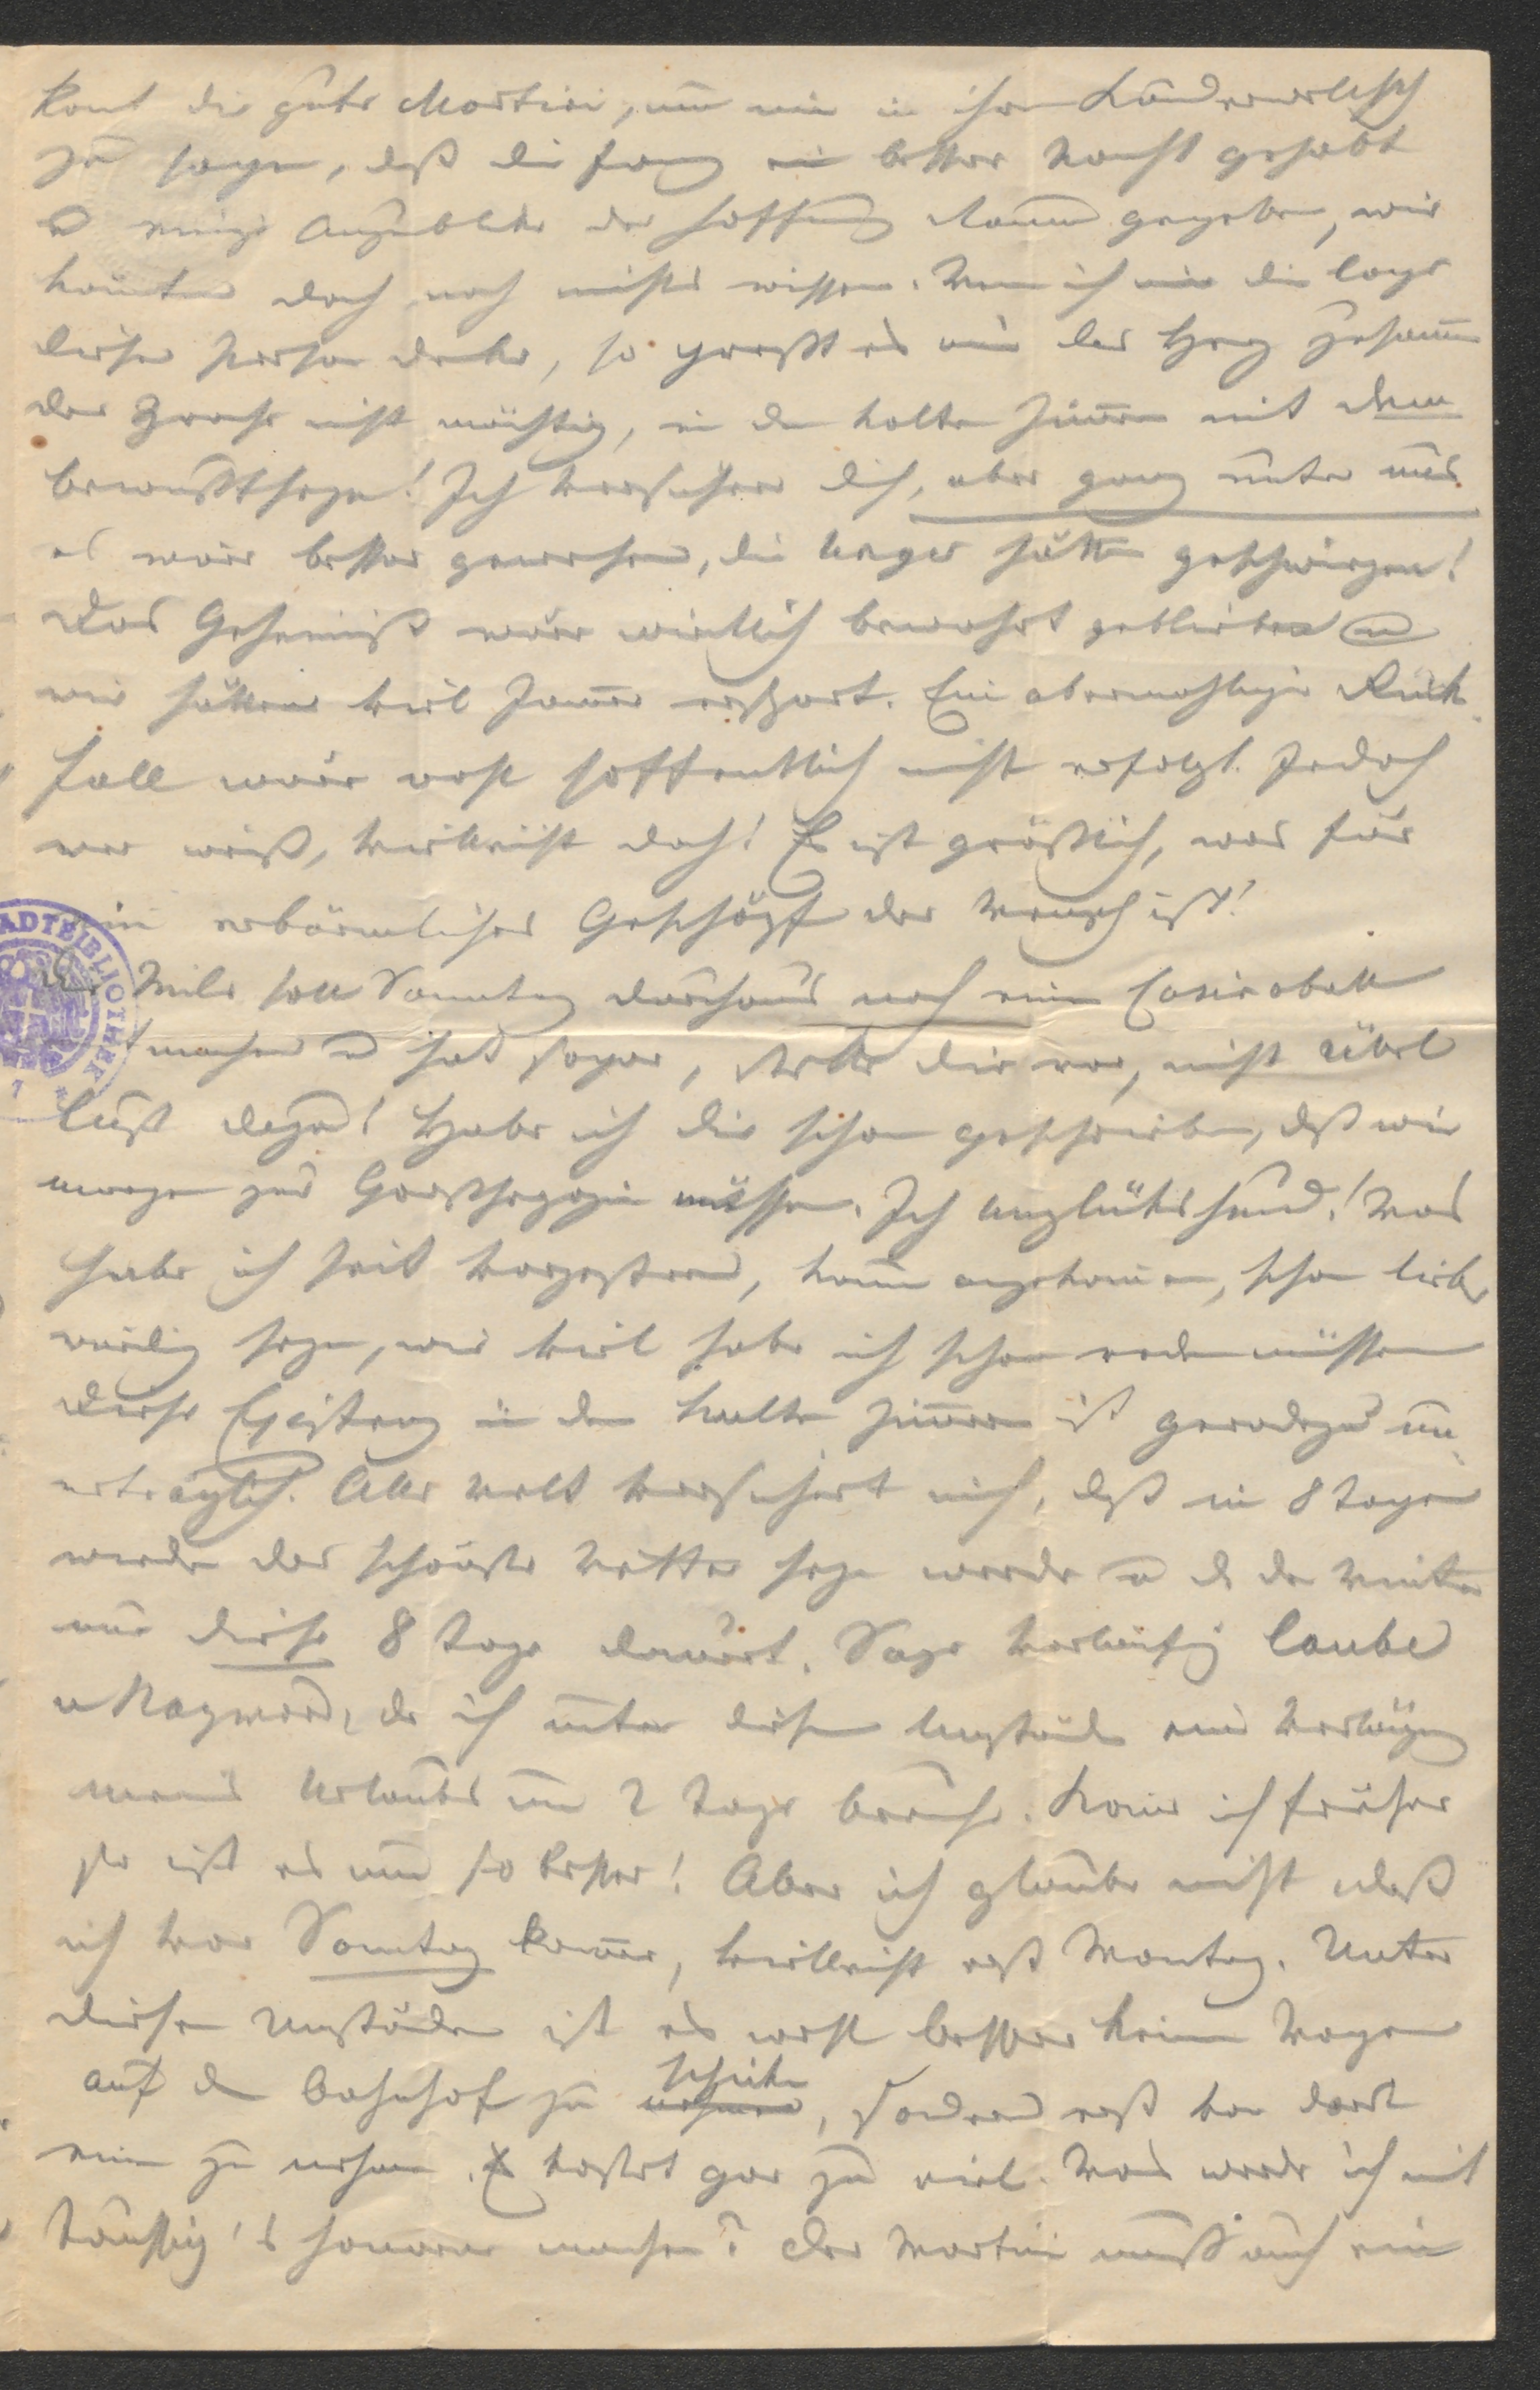 komt die gute Martini, um mir in ihrem Länderwelsch
zu sagen, daß die eine bessere Nacht gehabt
u einige Augenblicke der Hoffnung Raum gegeben, wir
könnten doch noch nichts wissen. Wenn ich mir die Lage
dieser Person denke, so preßt es mir das Herz zusamm
der Sprache nicht mächtig, in dem kalten Zimmer mit dem
Bewußtseyn! Ich versichere dich, aber ganz unter uns
es wäre besser gewesen, die Unger hätte geschwiegen!
Das Geheimniß wäre wirklich bewahrt geblieben u
wir hätten viel Jammer erspart. Ein abermahliger Rück
fall wäre wohl hoffentlich nicht erfolgt. Jedoch
wer weiß, vielleicht doch! Es ist gräßlich, was für
ein erbärmliches Geschöpf der Mensch ist!
Der soll Sonntag durchaus noch eine
machen u hat sogar, stelle dir vor, nicht übel
Lust dazu! Habe ich dir schon geschrieben, daß wir
morgen zur Großherzogin müssen. Ich Unglückshund! Was
habe ich seit vorgestern, kaum angekommen, schon liebens
würdig seyn, wie viel habe ich schon reden müssen
Diese Existenz in dem kalten Zimmer ist geradezu un
erträglich. Alle Welt versichert mich, daß in 8 Tagen
wieder das schönste Wetter seyn werde u d der Winter
nur diese 8 Tage dauert. Sage vorläufig Laube
u Raymond, da ich unter diesen Umständen eine Verlängerung
meines Urlaubs um 2 Tage brauche. Komme ich früher
so ist es um so besser! Aber ich glaube nicht daß
ich vor Sonntag komme, vielleicht erst Montag. Unter
diesen Umständen ist es wohl besser keinen Wagen
auf den Bahnhof zu schicken, sondern erst von dort
einen zu nehmen. Es kostet gar zu viel. Was werde ich mit
Honorar machen? Der Martini muß auch ein